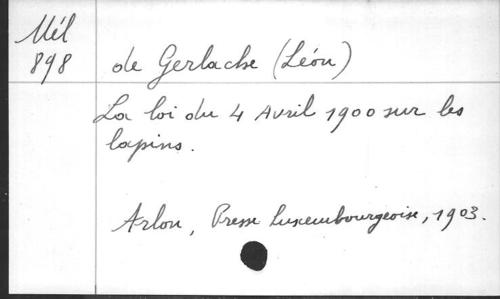 Mél
898
de Gerlache (Léon)
La loi du 4 Avril 1900 sur les
lapins.
Arlon, Presse Luxembourgeoise, 1903.